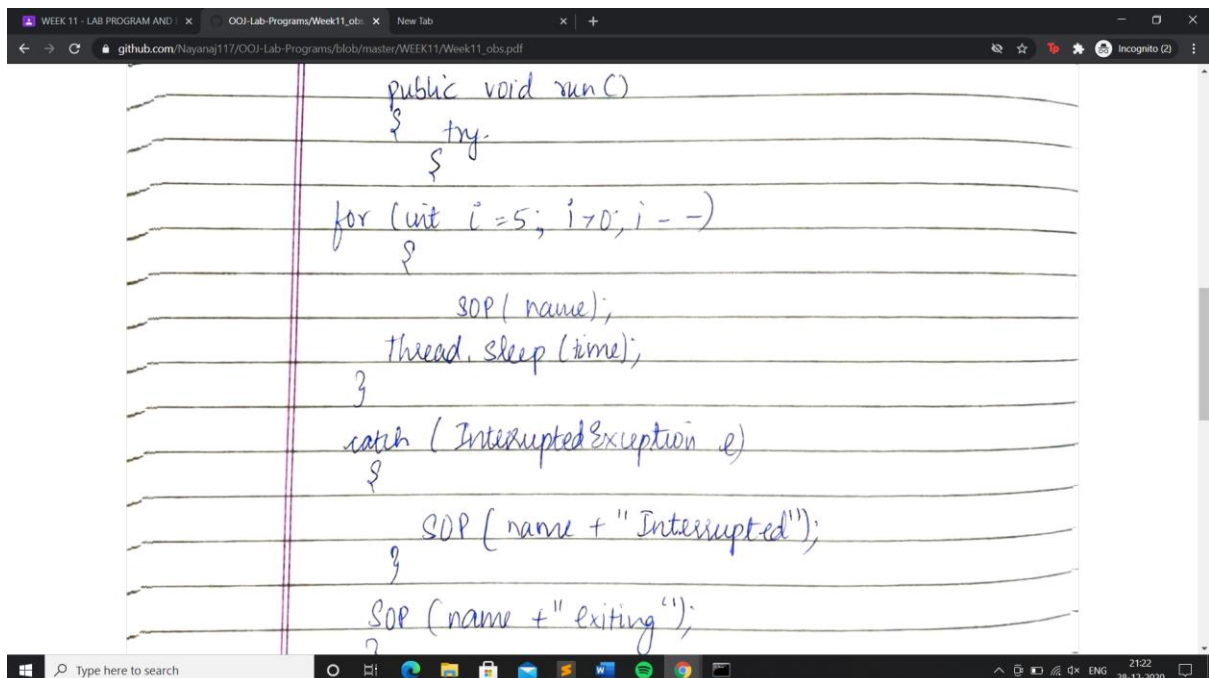 WEEK 11 - LAB PROGRAM AND
OOJ-Lab-Programs/Week11_obs
New Tab
github.com/Nayanaj117/OOJ-Lab-Programs/blob/master/WEEK11/Week11_obs.pdf
Incognito (2)
public void run()
{ try.
{
for (int i = 5; i > 0; i - -)
{
SOP ( name);
Thread. sleep (time);
}
catch ( InterruptedException e)
{
SOP ( name + " Interrupted");
}
SOP (name + " exiting");
}
Type here to search
ENG
21:22
28-12-2020